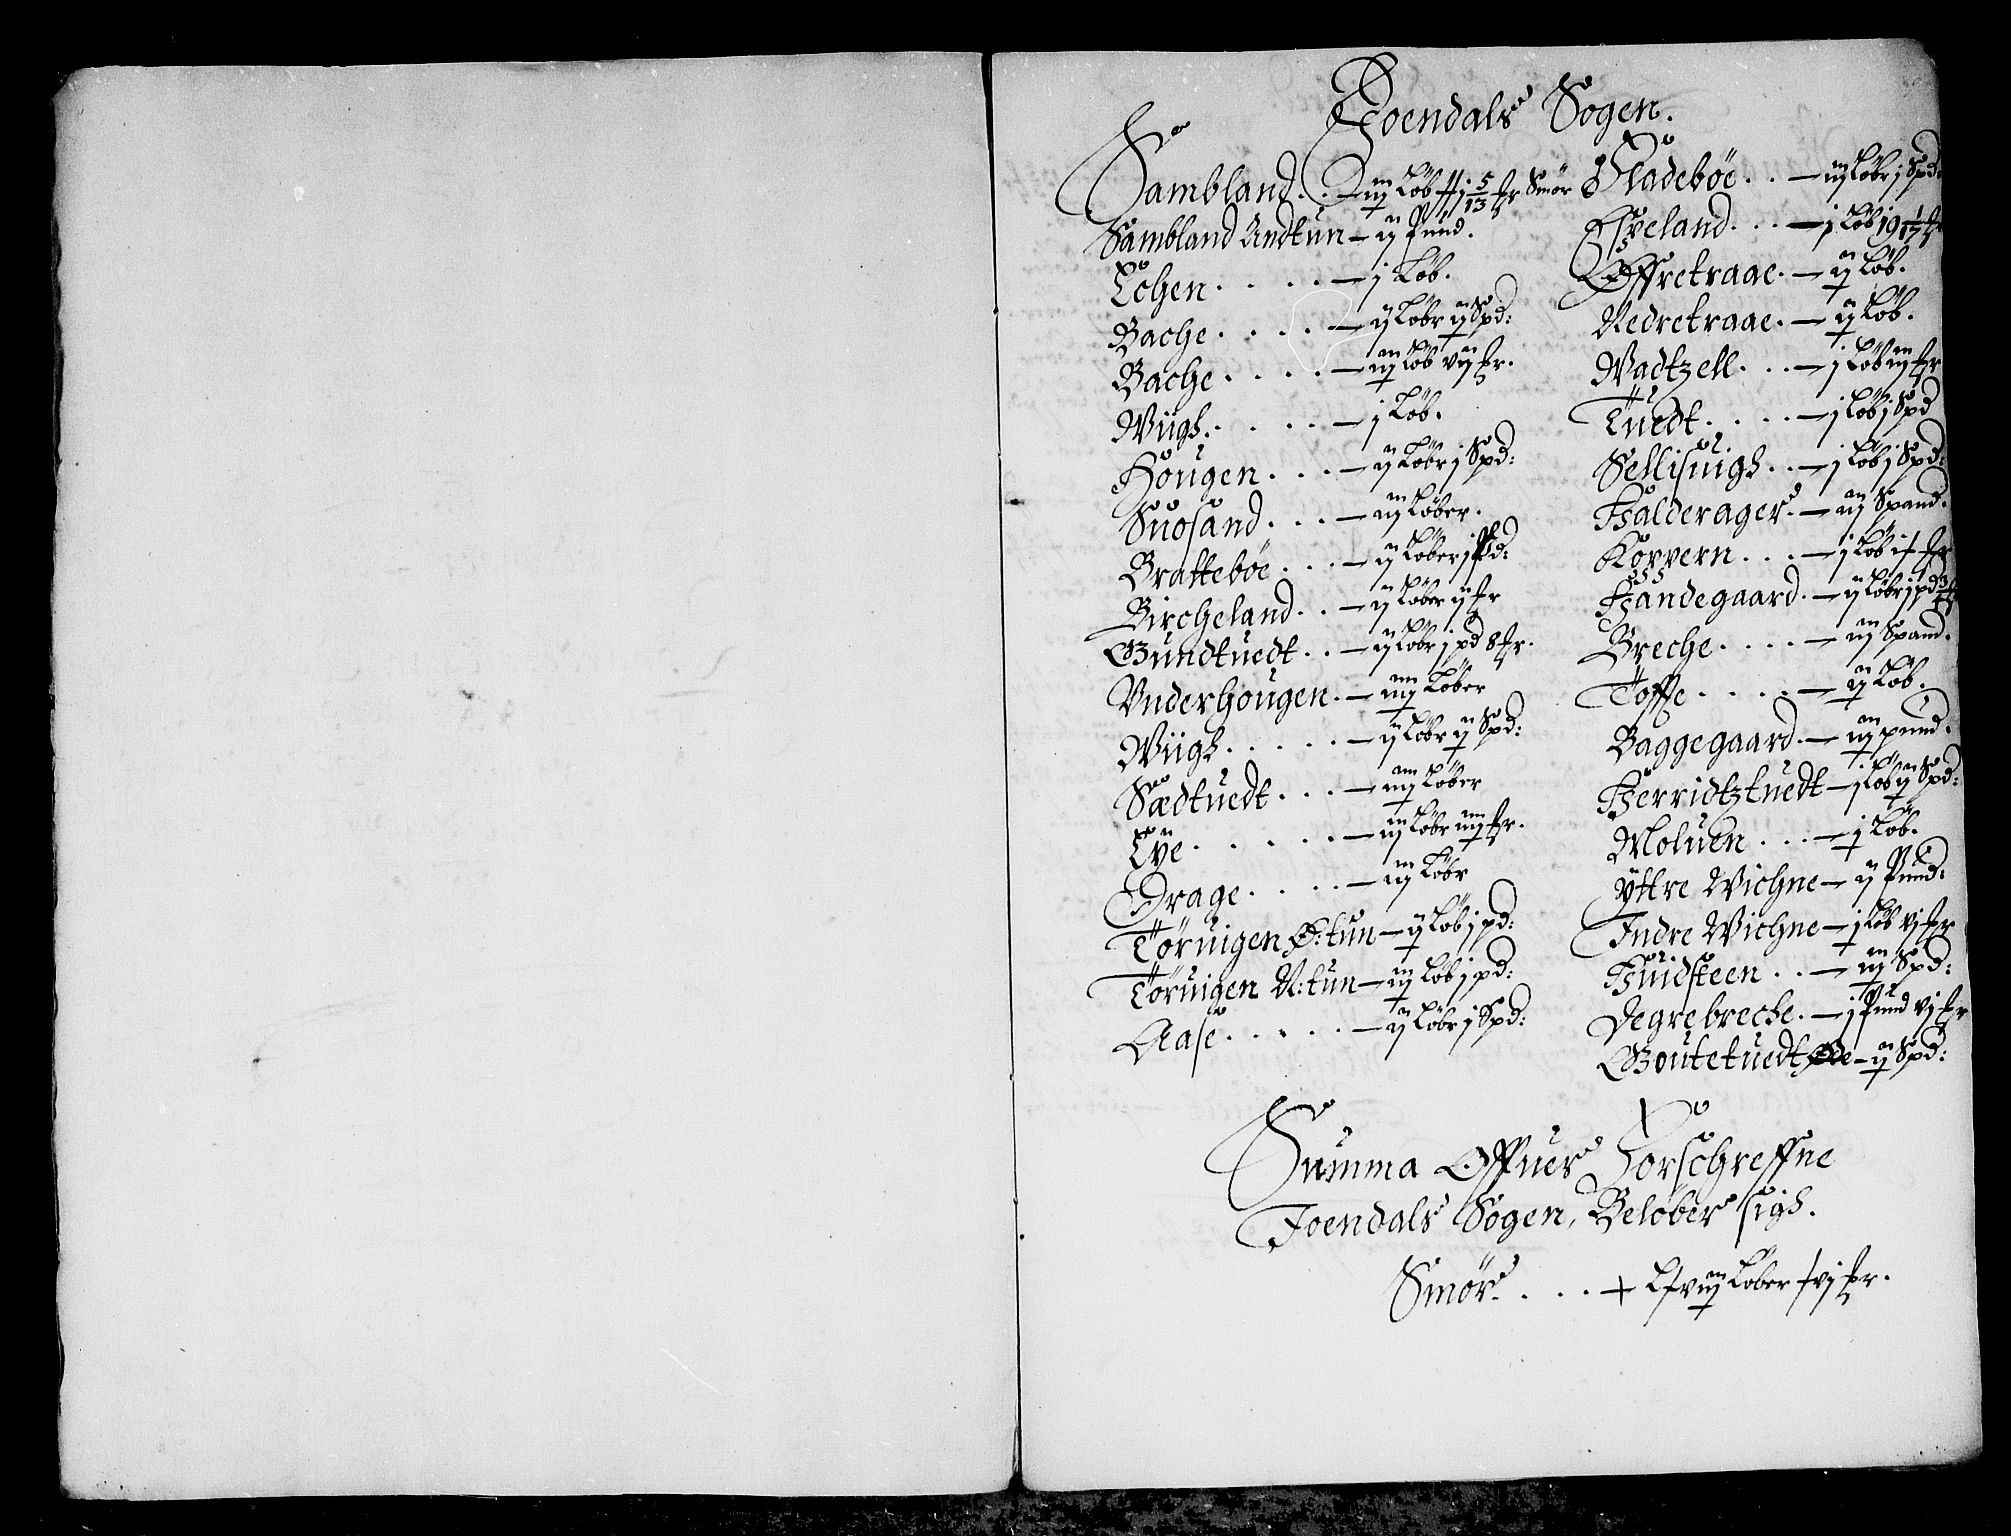 Joendals Sogen.
Sambland . . — iij Løb ij 5/13 fr Smør
Sambland Andtun — ij Pund.
Echen . . . . — j Løb.
Bache . . . . — ij Løbr ij Spd:
Bache . . . . — iij Løb vij fr.
Wiigh . . . . — j Løb.
Hougen . . . — ij Løbr j Spd:
Suosand . . . — iij Løber.
Brattebøe . . . — ij Løber j Pd:
Bircheland . . — ij Løber ij fr
Gundtuedt . . — ij Løbr j pd 8 fr.
Vnderhougen . — iiij Løber
Wiigh . . . . . — ij Løbr ij Spd:
Sædtuedt . . . — iiij Løber
Eye . . . . . — iij Løbr iiij fr.
Drage . . . . — iij Løbr
Tøruigen Ø: tun — ij Løb j pd:
Tøruigen N: tun — iij Løb j pd:
Aase . . . . . — ij Løbr j Spd:
Fladebøe . . — iij Løbr j Spd:
Espeland . . . — j Løb 19 1/17 fr
Øffretraae . — ij Løb.
Nedretraae . — ij Løb.
Wadtzell . . . — j Løb iij fr
Tuedt . . . . — j Løb j Spd
Sellisuigh . . — j Løb j Spd:
Halderager . — iij Spand.
Korvern . . . — j Løb ix fr
Handegaard . — ij Løbr j pd 3/4 fr
Breche . . . . — iij Spand.
Toffe . . . . — ij Løb.
Baggegaard . — iij pund.
Herridtztuedt — j Løb ij Spd:
Moluen . . . — j Løb.
Yttre Wichne — ij Pund:
Indre Wichne — j Løb vj fr
Huidsteen . . — iij Spd:
Degrebreche . — j Pund vj fr
Goutetuedt Øde — ij Spd:
Summa Offuer Forschreffne
Joendals Sogen, Beløber sigh.
Smør . . . . + Lxviij Løber xvj fr.